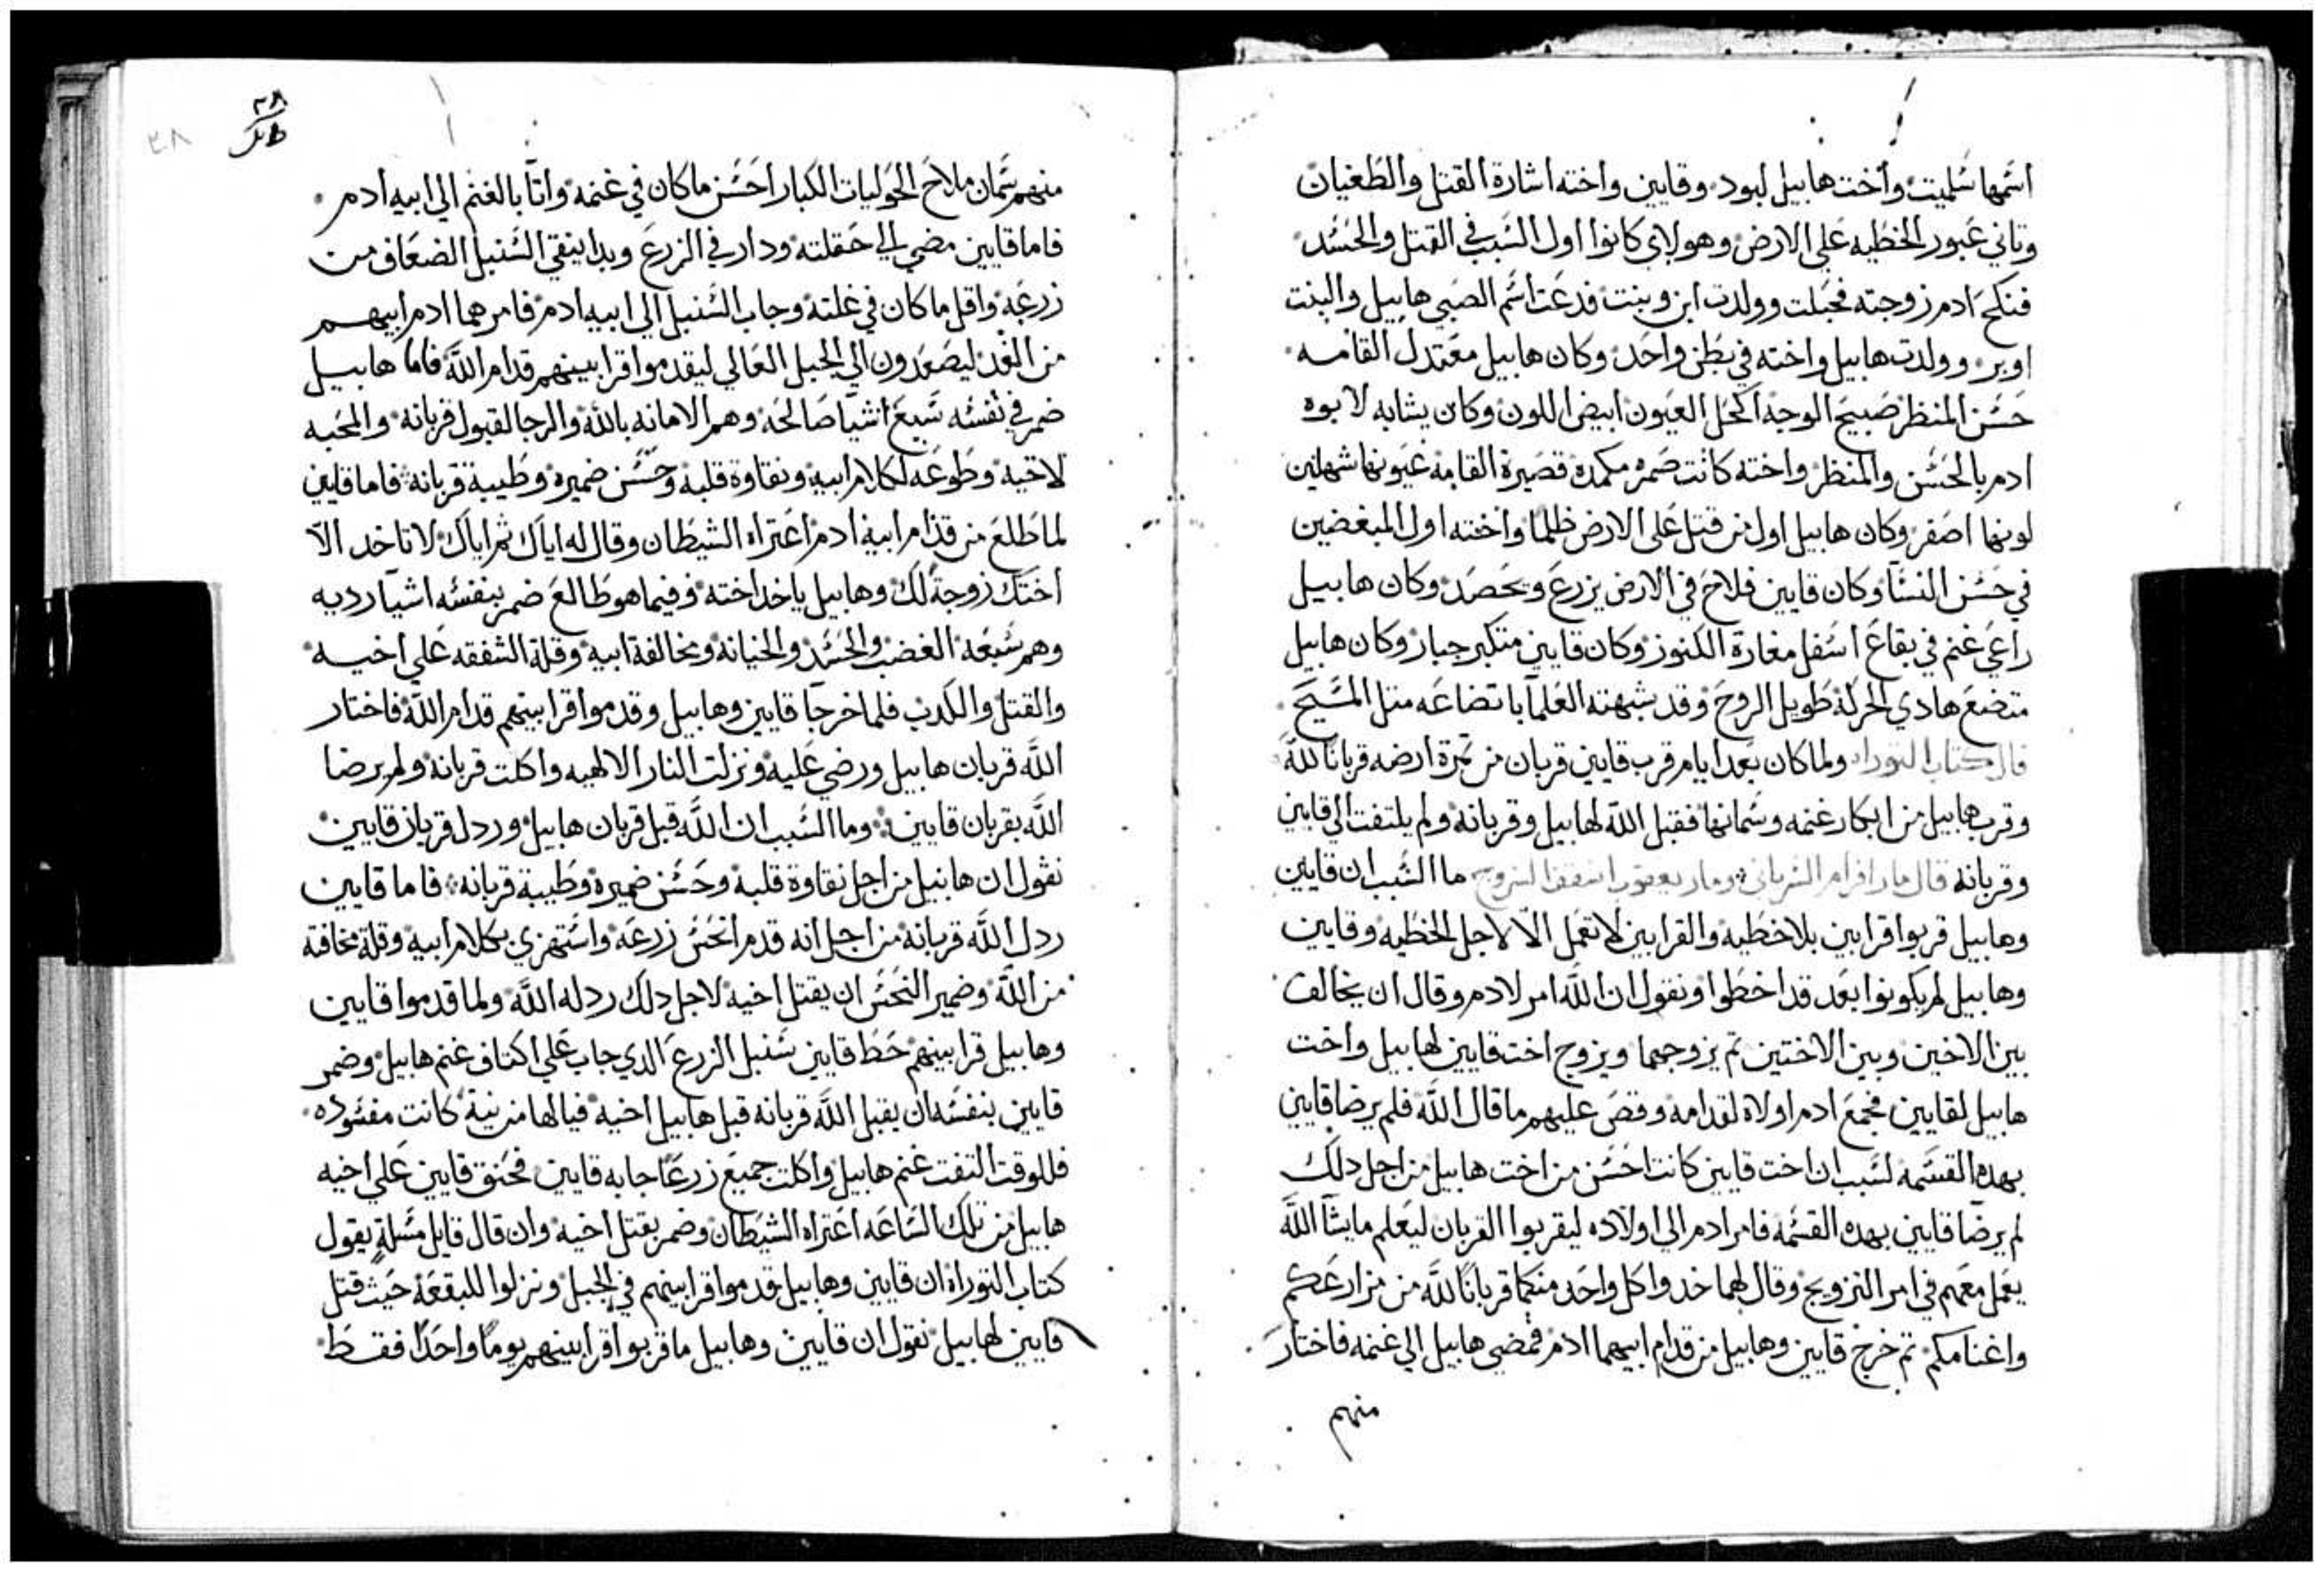 اسمها سليت وأخت هابيل لبود وقايين واخته اشارة القتل والطغيان
وتاني عبور الخطيه علي الارض وهولاي كانوا اول السبب في القتل والحسد
فنكح ادم زوجته فحبلت وولدت ابن وبنت فدعت اسم الصبي هابيل والبنت
اوبر وولدت هابيل واخته في بطن واحد وكان هابيل معتدل القامه
حسن المنظر صبيح الوجه اكحل العيون ابيض اللون وكان يشابه لابوه
ادم بالحسن والمنظر واخته كانت صمره مكمده قصيرة القامه عيونها شهلين
لونها اصفر وكان هابيل اول من قتل علي الارض ظلما واخته اول المبغضين
في حسن النسا وكان قايين فلاح في الارض يزرع ويحصد وكان هابيل
راعي غنم في بقاع اسفل مغارة الكنوز وكان قايين متكبر جبار وكان هابيل
متضع هادي الحركه طويل الروح وقد شبهته العلما باتضاعه متل المسيح
قال كتاب التوراه ولما كان بعد ايام قرب قايين قربان من تمرة ارضه قربانا لله
وقرب هابيل من ابكار غنمه وسمانها فقبل الله لهابيل وقربانه ولم يلتفت الي قايين
وقربانه قال مار افرام السرياني ومار يعقوب اسقف السروج ما السبب ان قايين
وهابيل قربوا قرابين بلا خطيه والقرابين لا تعمل الا لاجل الخطيه وقايين
وهابيل لم يكونوا بعد قد اخطوا ونقول ان الله امر لادم وقال ان يخالف
بين الاخين وبين الاختين تم يزوجهما ويزوج اخت قايين لهابيل واخت
هابيل لقايين فجمع ادم اولاه لقدامه وقص عليهم ما قال الله فلم يرضا قايين
بهده القسمه لسبب ان اخت قايين كانت احسن من اخت هابيل من اجل دلك
لم يرضا قايين بهده القسمه فامر ادم الي اولاده ليقربوا القربان ليعلم ما يشا الله
يعمل معهم في امر التزويج وقال لهما خدوا كل واحد منكما قربانا لله من مزارعكم
واغنامكم تم خرج قايين وهابيل من قدام ابيهما ادم فمضي هابيل الي غنمه فاختار
منهم
٣٨
منهم سمان ملاح الحوليات الكبار احسن ما كان في غنمه واتا بالغنم الي ابيه ادم
فاما قايين مضي الي حقلته ودار في الزرع وبدا ينقي السنبل الضعاف من
زرعه واقل ما كان في غلته وجاب السنبل الي ابيه ادم فامرهما ادم ابيهم
من الغد ليصعدون الي الجبل العالي ليقدموا قرابينهم قدام الله فاما هابيل
ضمر في نفسه سبع اشيا صالحه وهم الامانه بالله والرجا لقبول قربانه والمحبه
لاخيه وطوعه لكلام ابيه ونقاوة قلبه وحسن ضميره وطيبة قربانه فاما قايين
لما طلع من قدام ابيه ادم اعتراه الشيطان وقال له اياك ثم اياك لا تاخد الا
اختك زوجة لك وهابيل ياخد اخته وفيما هو طالع ضمر بنفسه اشيا رديه
وهم سبعه الغضب والحسد والخيانه ومخالفة ابيه وقلة الشفقه علي اخيه
والقتل والكدب فلما خرجا قايين وهابيل وقدموا قرابينهم قدام الله فاختار
الله قربان هابيل ورضي عليه ونزلت النار الالهيه واكلت قربانه ولم يرضا
الله بقربان قايين وما السبب ان الله قبل قربان هابيل وردل قربان قايين
نقول ان هابيل من اجل نقاوة قلبه وحسن ضميره وطيبة قربانه فاما قايين
ردل الله قربانه من اجل انه قدم انحس زرعه واستهزي بكلام ابيه وقلة مخافة
من الله وضمير النحس ان يقتل اخيه لاجل دلك ردله الله ولما قدموا قايين
وهابيل قرابينهم حط قايين سنبل الزرع الدي جاب علي اكتاف غنم هابيل وضمر
قايين بنفسه ان يقبل الله قربانه قبل هابيل اخيه فيالها من نية كانت مفسوده
فللوقت التفت غنم هابيل واكلت جميع زرعا جابه قايين فحنق قايين علي اخيه
هابيل من تلك الساعه اعتراه الشيطان وضمر بقتل اخيه وان قال قايل مسلة يقول
كتاب التوراه ان قايين وهابيل قدموا قرابينهم في الجبل ونزلوا للبقعه حيث قتل
قايين لهابيل نقول ان قايين وهابيل ما قربوا قرابينهم يوما واحدا فقط